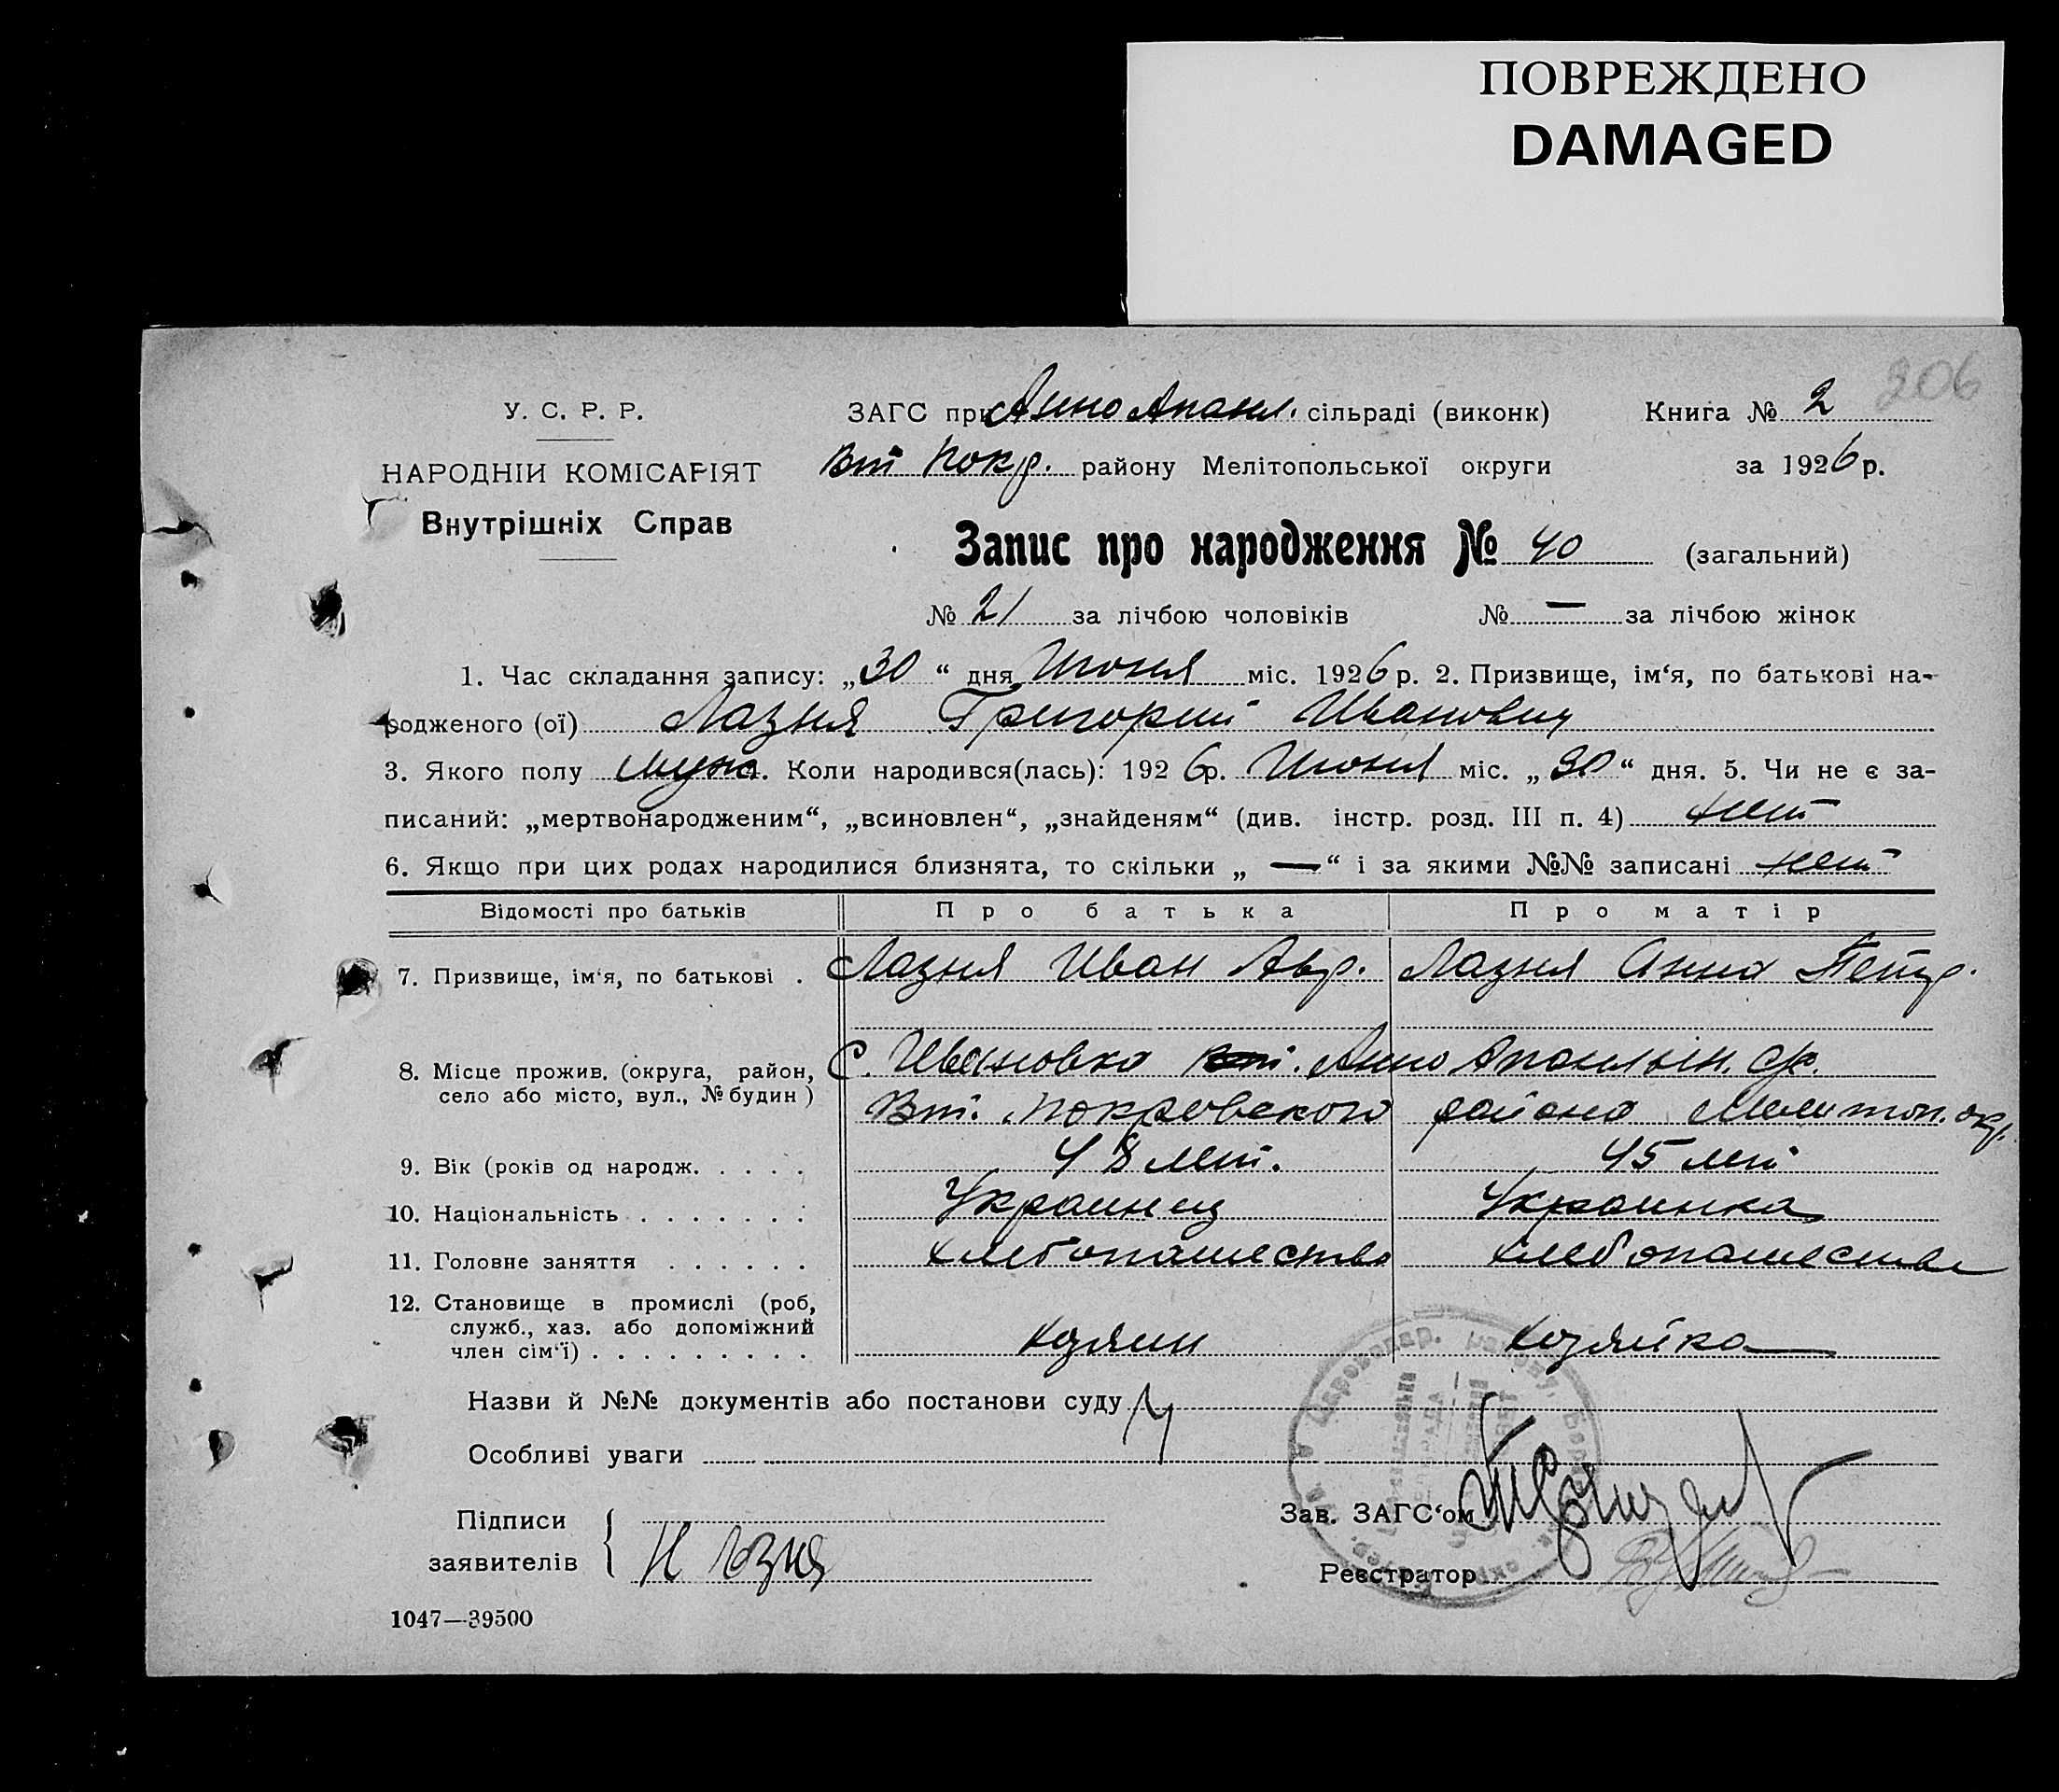 ПОВРЕЖДЕНО
DAMAGED
206
У. С. Р. Р.
НАРОДНІЙ КОМІСАРІЯТ
Внутрішніх Справ
ЗАГС при Анно Апанл. сільраді (виконк)
Книга № 2
Вт Покр. району Мелітопольської округи
за 1926 р.
Запис про народження № 40 (загальний)
№ 21 за лічбою чоловіків № — за лічбою жінок
1. Час складання запису: „30“ дня Июня міс. 1926 р. 2. Призвище, ім‘я, по батькові на-
родженого (ої) Лазня Григорий Иванович
3. Якого полу муж. 4. Коли народився(лась): 1926 р. Июня міс. „30“ дня. 5. Чи не є за-
писаний: „мертвонародженим“, „всиновлен“, „знайденям“ (див. інстр. розд. III п. 4) нет
6. Якщо при цих родах народилися близнята, то скільки „ — “ і за якими №№ записані нет
Відомості про батьків Про батька Про матір
7. Призвище, ім‘я, по батькові . Лазня Иван Авр. Лазня Анна Петр.
8. Місце прожив. (округа, район, село або місто, вул., № будин ) С. Ивановка Анно Апанлын. с/р.
Вт. Покровского района Мелитоп. окр.
9. Вік (років од народж. . . . . 48 лет. 45 лет
10. Національність . . . . . . . Украинец Украинка
11. Головне заняття . . . . . . хлебопашество хлебопашество
12. Становище в промислі (роб,
служб., хаз. або допоміжний
член сім‘ї) . . . . . . . . . хозяин хозяйка
Назви й №№ документів або постанови суду
Особливі уваги
Підписи
заявителів
И Лозня
Зав. ЗАГС‘ом
Реєстратор
1047—39500